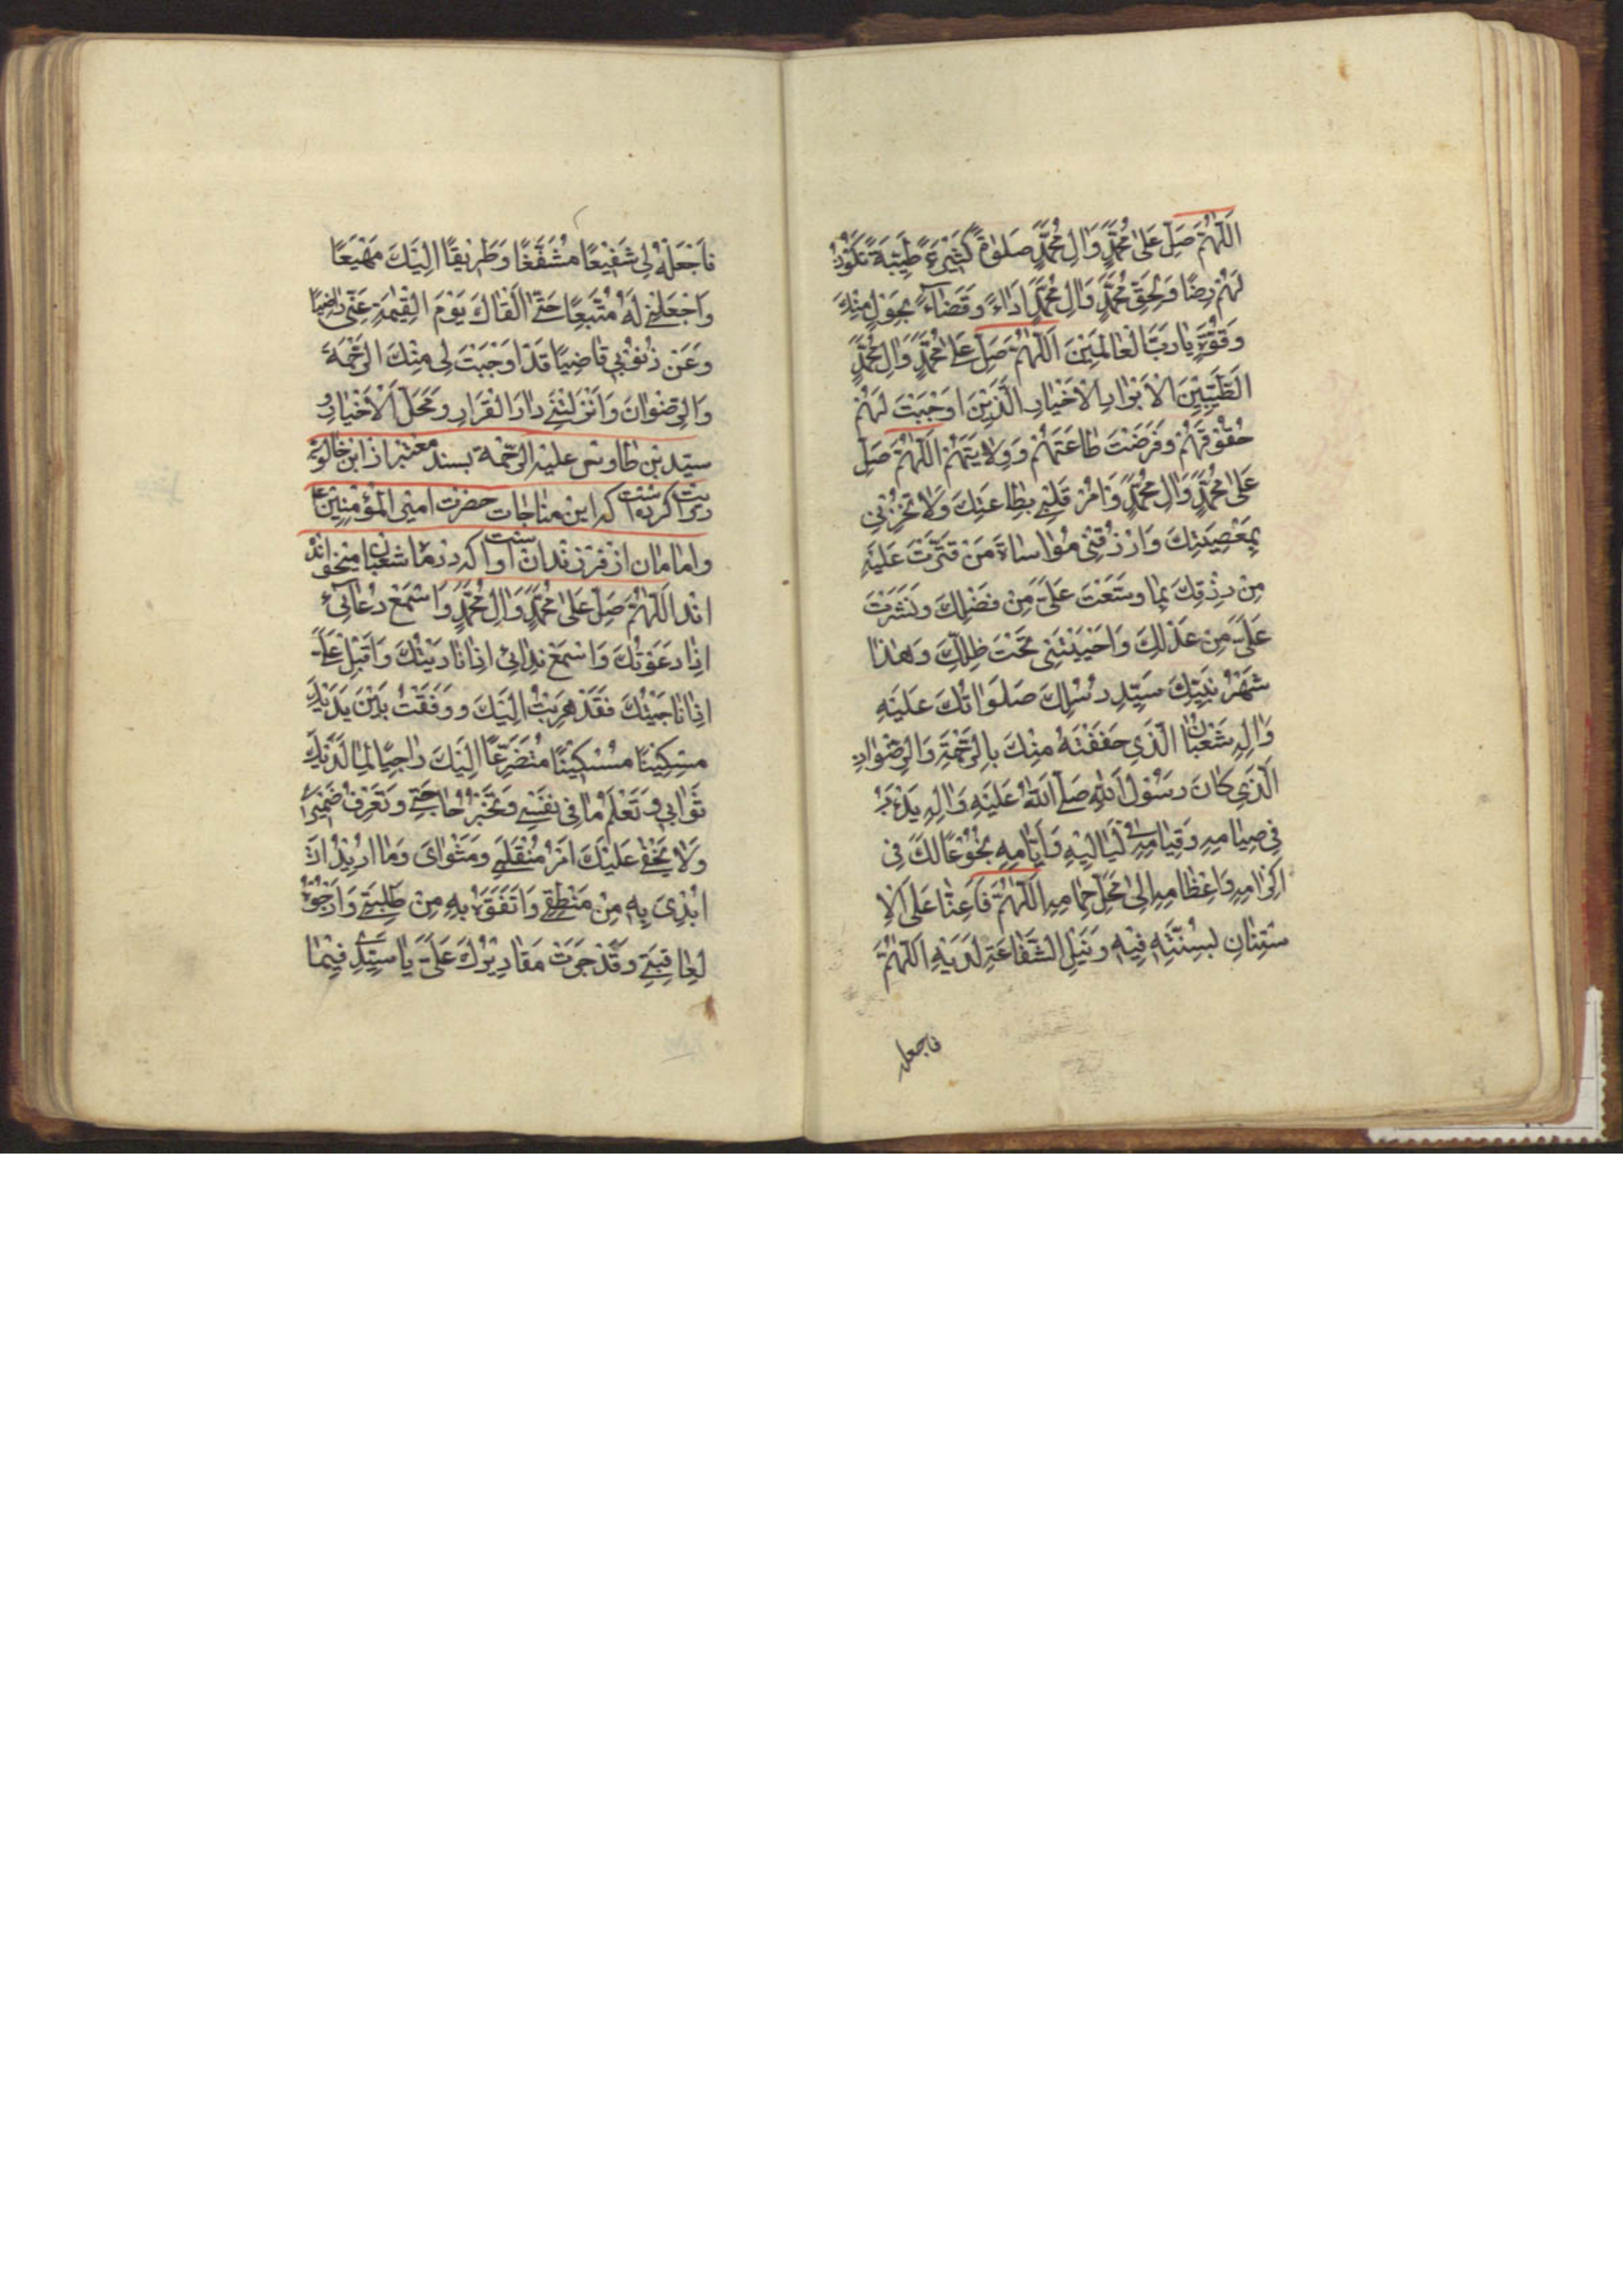 اَللّٰهُمَّ صَلِّ عَلٰى مُحَمَّدٍ وَاٰلِ مُحَمَّدٍ صَلٰوةً كَثيرَةً طَيِّبَةً تَكُونُ
لَهُمْ رِضًا وَلِحَقِّ مُحَمَّدٍ وَاٰلِ مُحَمَّدٍ اَدٰاءً وَقَضٰاءً بِحَوْلٍ مِنْكَ
وَقُوَّةٍ يٰا رَبَّ الْعٰالَمينَ اَللّٰهُمَّ صَلِّ عَلٰى مُحَمَّدٍ وَاٰلِ مُحَمَّدٍ
الطَّيِّبينَ الْاَبْرٰارِ الْاَخْيٰارِ الَّذينَ اَوْجَبْتَ لَهُمْ
حُقُوقَهُمْ وَفَرَضْتَ طٰاعَتَهُمْ وَوِلٰايَتَهُمْ اَللّٰهُمَّ صَلِّ
عَلٰى مُحَمَّدٍ وَاٰلِ مُحَمَّدٍ وَامُرْ قَلْبى بِطٰاعَتِكَ وَلٰا تُخْزِنى
بِمَعْصِيَتِكَ وَارْزُقْنى مُوٰاسٰاةَ مَنْ قَتَّرْتَ عَلَيْهِ
مِنْ رِزْقِكَ بِمٰا وَسَّعْتَ عَلَىَّ مِنْ فَضْلِكَ وَنَشَرْتَ
عَلَىَّ مِنْ عَدْلِكَ وَاَحْيَيْتَنى تَحْتَ ظِلِّكَ وَهٰذٰا
شَهْرُ نَبِيِّكَ سَيِّدِ رُسُلِكَ صَلَوٰاتُكَ عَلَيْهِ
وَاٰلِهِ شَعْبٰانُ الَّذى حَفَفْتَهُ مِنْكَ بِالرَّحْمَةِ وَالرِّضْوٰانِ
الَّذى كٰانَ رَسُولُ اللّٰهِ صَلَّى اللّٰهُ عَلَيْهِ وَاٰلِهِ يَدْءَبُ
فى صِيٰامِهِ وَقِيٰامِهِ فى لَيٰاليهِ وَاَيّٰامِهِ بُخُوعًا لَكَ فى
اِكْرٰامِهِ وَاِعْظٰامِهِ اِلٰى مَحَلِّ حِمٰامِهِ اَللّٰهُمَّ فَاَعِنّٰا عَلَى الْاِ
سْتِنٰانِ بِسُنَّتِهِ فيهِ وَنَيْلِ الشَّفٰاعَةِ لَدَيْهِ اَللّٰهُمَّ
فاجعل
فَاجْعَلْهُ لى شَفيعًا مُشَفَّعًا وَطَريقًا اِلَيْكَ مَهْيَعًا
وَاجْعَلْنى لَهُ مُتَّبِعًا حَتّٰى اَلْقٰاكَ يَوْمَ الْقِيٰمَةِ عَنّى رٰاضِيًا
وَعَنْ ذُنُوبى قٰاضِيًا قَدْ اَوْجَبْتَ لى مِنْكَ الرَّحْمَةَ
وَالرِّضْوٰانَ وَاَنْزَلْتَنى دٰارَ الْقَرٰارِ وَمَحَلَّ الْاَخْيٰارِ و
سيّد بن طاوس عليه الرّحمة بسند معتبر از ابن خالويه
روايت كرده است كه اين مناجات حضرت امير المؤمنين ع
وامامان از فرزندان او است كه در ماه شعبان ميخوانده
اند اَللّٰهُمَّ صَلِّ عَلٰى مُحَمَّدٍ وَاٰلِ مُحَمَّدٍ وَاسْمَعْ دُعٰائى
اِذٰا دَعَوْتُكَ وَاسْمَعْ نِدٰائى اِذٰا نٰادَيْتُكَ وَاَقْبِلْ عَلَىَّ
اِذٰا نٰاجَيْتُكَ فَقَدْ هَرَبْتُ اِلَيْكَ وَوَقَفْتُ بَيْنَ يَدَيْكَ
مِسْكينًا مُسْتَكينًا مُتَضَرِّعًا اِلَيْكَ رٰاجِيًا لِمٰا لَدَيْكَ
ثَوٰابى وَتَعْلَمُ مٰا فى نَفْسى وَتَخْبُرُ حٰاجَتى وَتَعْرِفُ ضَميرى
وَلٰا يَخْفٰى عَلَيْكَ اَمْرُ مُنْقَلَبى وَمَثْوٰاىَ وَمٰا اُريدُ اَنْ
اُبْدِىَ بِهِ مِنْ مَنْطِقى وَاَتَفَوَّهُ بِهِ مِنْ طَلِبَتى وَاَرْجُوهُ
لِعٰاقِبَتى وَقَدْ جَرَتْ مَقٰاديرُكَ عَلَىَّ يٰا سَيِّدى فيمٰا